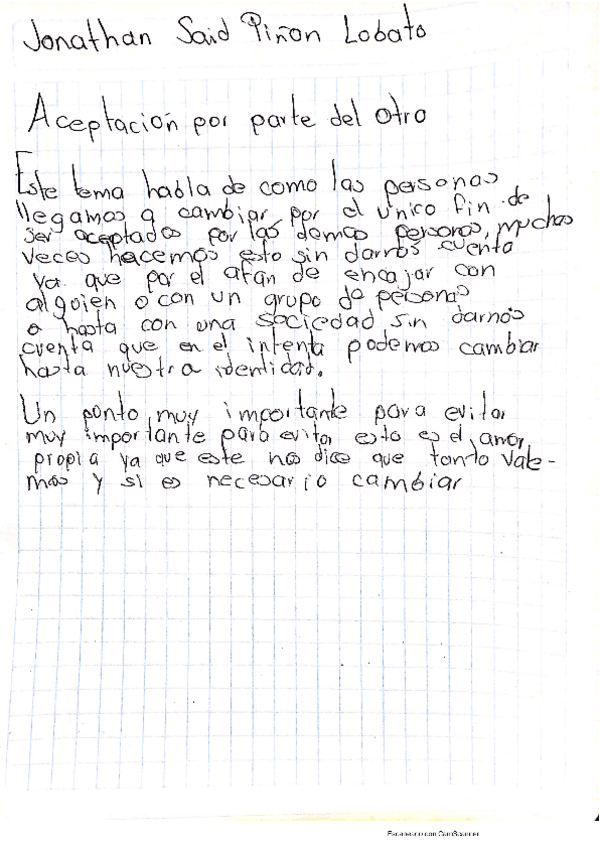 Jonathan Said Piñon Lobato
Aceptación por parte del otro
Este tema habla de como las personas
llegamos a cambiar por el unico fin de
ser aceptados por las demas personas, muchas
veces hacemos esto sin darnos cuenta
ya que por el afán de encajar con
alguien o con un grupo de personas
o hasta con una sociedad sin darnos
cuenta que en el intento podemos cambiar
hasta nuestra identidad.
Un punto muy importante para evitar
muy importante para evitar esto es el amor
propia ya que este nos dice que tanto vale-
mos y si es necesario cambiar
Escaneado con CamScanner